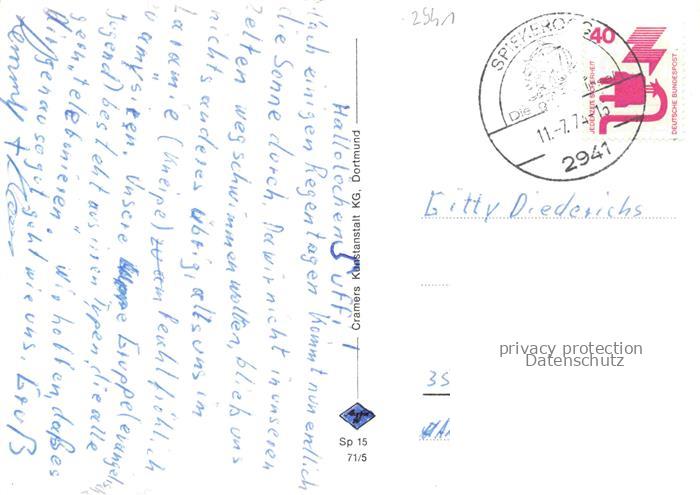 2941
Hallolöchen Gitti!
Nach einigen Regentagen kommt nun endlich
die Sonne durch. Da wir nicht in unseren
Zelten wegschwimmen wollten, blieb uns
nichts anderes übrig als uns im
"Laramie" (Kneipe)
zu amysieren. Unsere Gruppe (evangelische
Jugend) besteht aus irren Typen, die alle
gern "telebunieren". Wir hoffen, daß es
Dir genausogut geht wie uns. Gruß
Conny +
Cramers Kunstanstalt KG, Dortmund
Sp 15
71/5
SPIEKEROOG
Die
11.-7.74-15
2941
40
JEDERZEIT SICHERHEIT
DEUTSCHE BUNDESPOST
Gitty Diederichs
privacy protection
Datenschutz
35